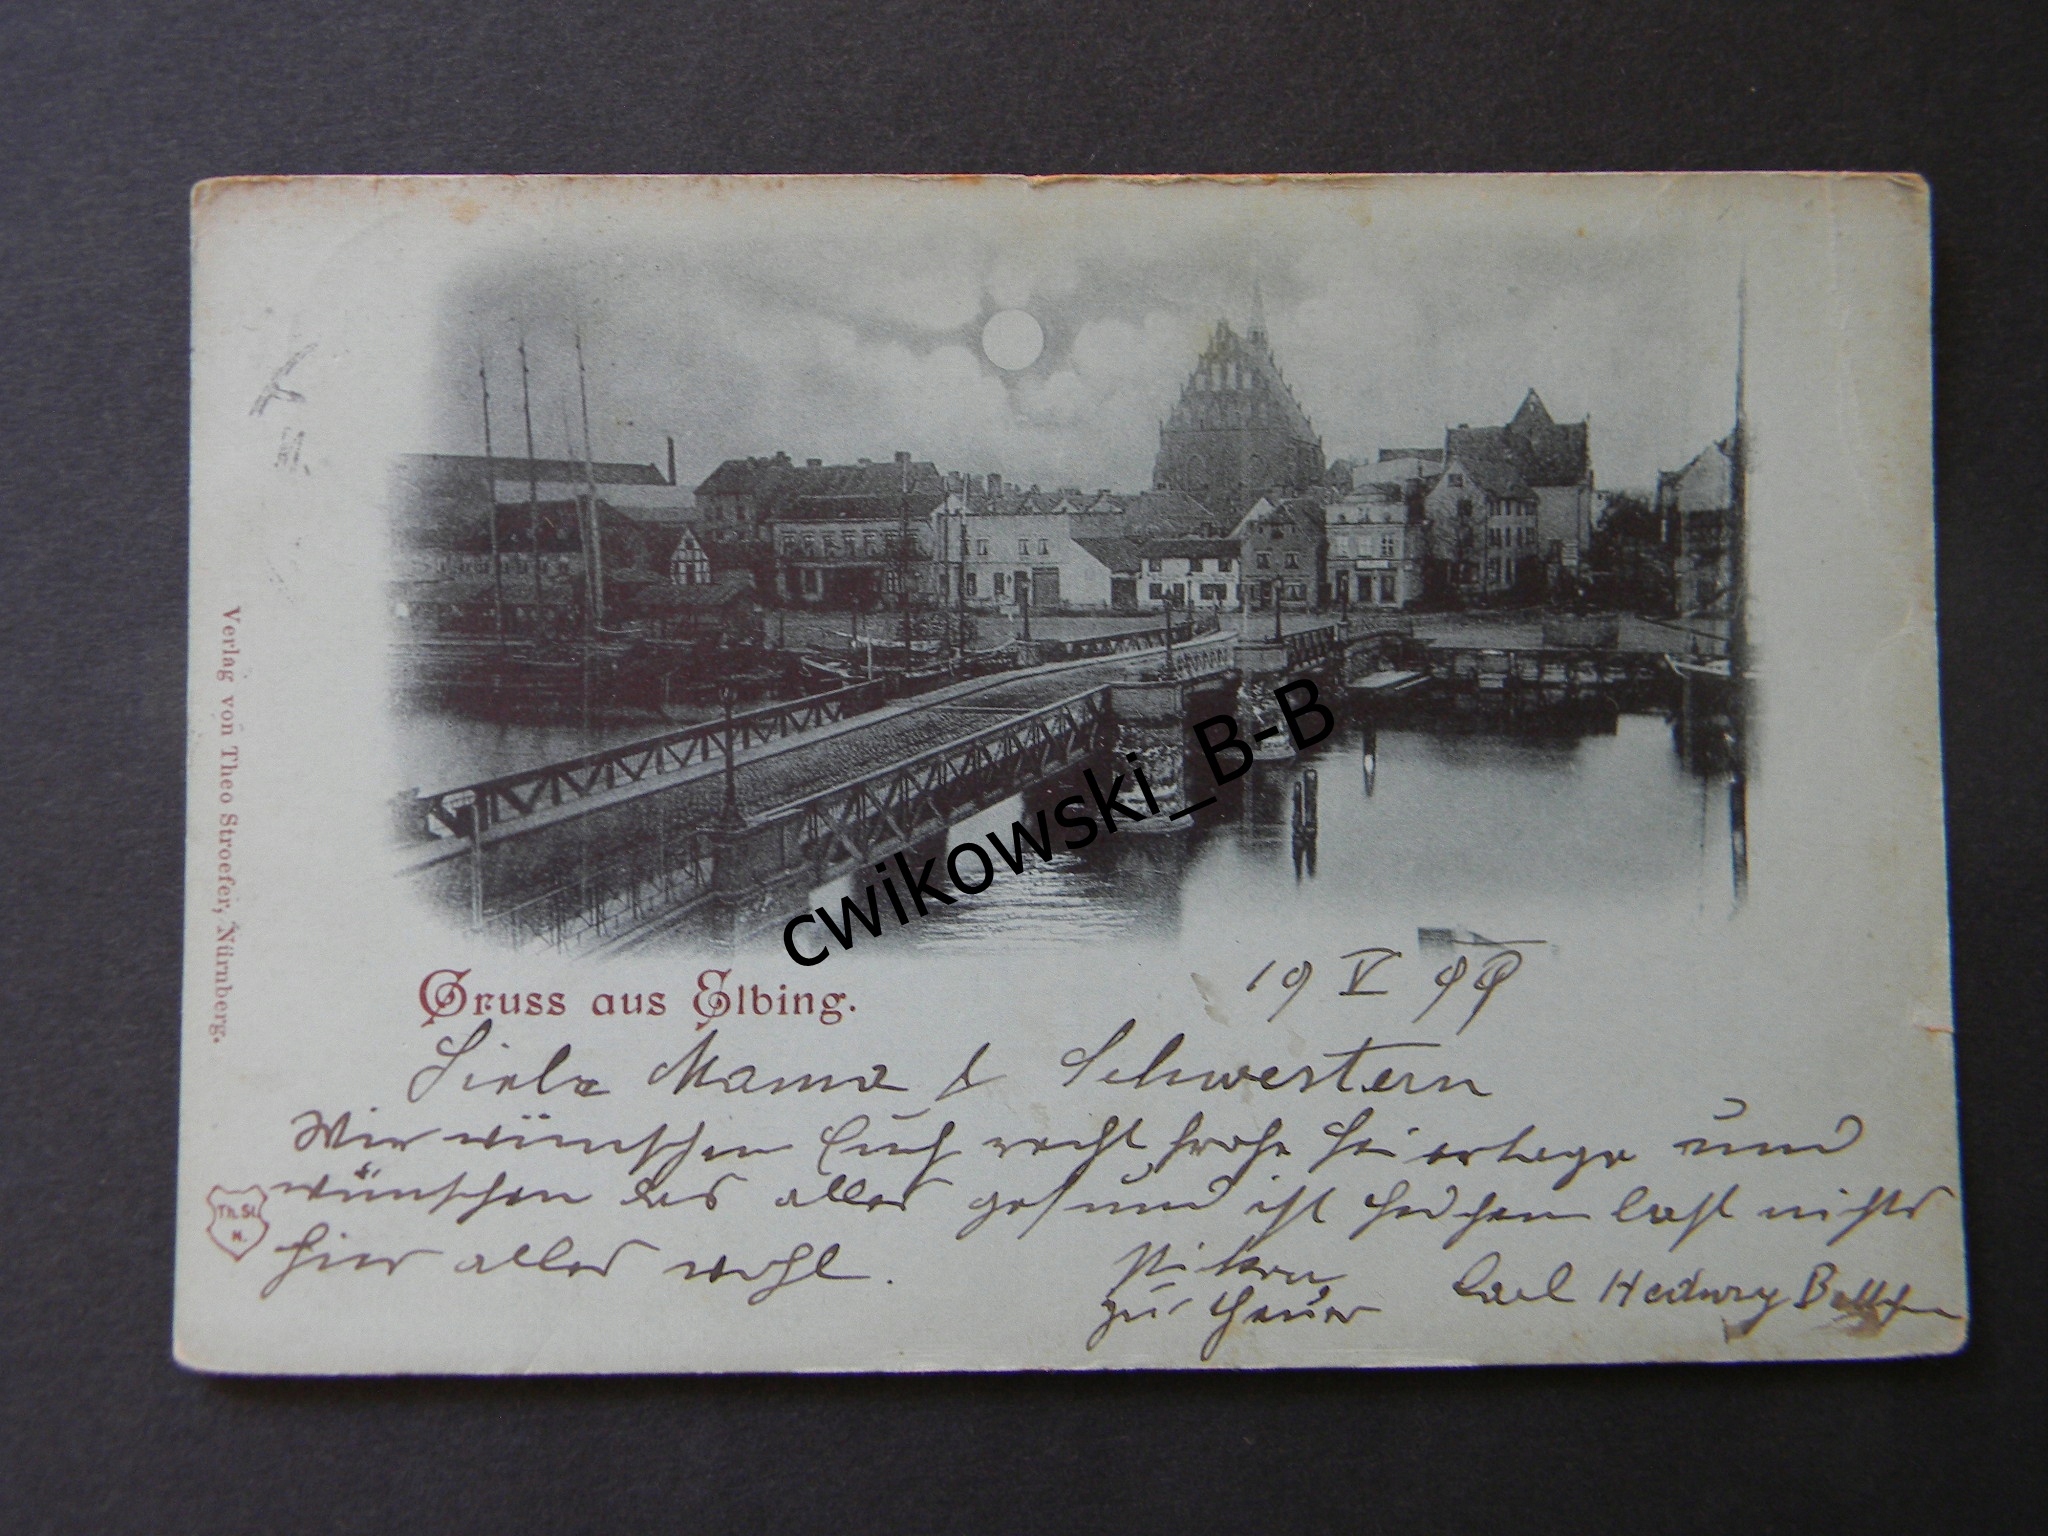 Verlag von Theo Stroefer, Nürnberg.
cwikowski_B-B
Gruss aus Elbing.
19 V 99
Liebe Mama & Schwestern
Wir wünschen Euch recht frohe Feiertage und
wünschen das alles gesund ist last nichts
hier alles wohl.
zur
Carl Hedwig
Th. St.
N.